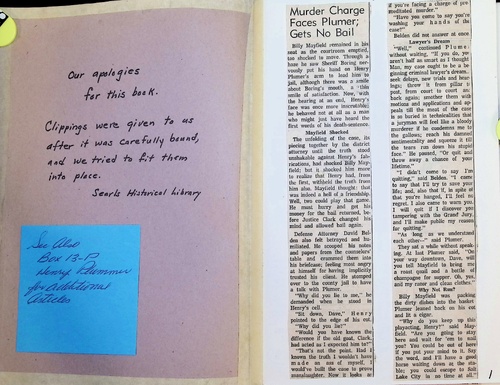 Our apologies
for this book.
Clippings were given to us
after it was carefully bound,
and we tried to fit them
into place.
Searls Historical Library
See Also
Box 13-P
Henry Plummer
for Additional
Articles
Murder Charge
Faces Plumer;
Gets No Bail
Billy Mayfield remained in his
seat as the courtroom emptied,
too shocked to move. Through a
haze he saw Sheriff Boring nervously
put his hand on Henry
Plumer's arm to lead him to
jail, although there was a smile
about Boring's mouth, a thin
smile of satisfaction. Now, with
the hearing at an end, Henry's
face was once more inscrutable;
he behaved not at all as a man
who might just have heard the
first words of his death-sentence.
Mayfield Shocked
The unfolding of the case, its
piecing together by the district
attorney until the truth stood
unshakable against Henry's fabrications,
had shocked Billy Mayfield;
but it shocked him more
to realize that Henry had, from
the first, withheld the truth from
him also. Mayfield thought: that
was indeed a hell of a friendship.
Well, two could play that game.
He must hurry and get his
money for the bail returned, before
Justice Clark changed his
mind and allowed bail again.
Defense Attorney David Belden
also felt betrayed and humiliated.
He scooped his notes
and papers from the counselor's
table and crammed them into
his briefcase, feeling most angry
at himself for having implicitly
trusted his client. He stomped
over to the county jail to have
a talk with Plumer.
"Why did you lie to me," he
demanded when he stood in
Henry's cell.
"Sit down, Dave," Henry
pointed to the edge of his cot.
"Why did you lie?"
"Would you have known the
difference if the old goat, Clark,
had acted as I expected him to?"
"That's not the point. Had I
known the truth I wouldn't have
made an ass of myself, I
would've built the case to prove
manslaughter. Now it looks as
if you're facing a charge of premeditated
murder."
"Have you come to say you're
washing your hands of the
case?"
Belden did not answer at once.
Lawyer's Dream
"Well," continued Plumer
without waiting, "If you do, you
aren't half as smart as I thought.
Man, my case ought to be a beginning
criminal lawyer's dream,
with delays, new trials and hearings;
throw it from pillar to
post, from court to court and
back again; smother them with
motions and applications and appeals
till the meat of the case
is so buried in technicalities that
a juryman will feel like a bloody
murderer if he condemns me to
the gallows; reach his damned
sentimentality and squeeze it till
the tears run down his stupid
face." He paused, "Or quit and
throw away a chance of your
lifetime."
"I didn't come to say I'm
quitting," said Belden. "I came
to say that I'll try to save your
life; and, also that if, in spite of
that you're hanged, I'll feel no
regret. I also came to warn you
I will quit if I discover you
tampering with the Grand Jury,
and I'll make public my reason
for quitting."
"As long as we understand
each other—" said Plumer.
They sat a while without speaking.
At last Plumer said, "On
your way downtown, Dave, will
you tell Mayfield to bring me
a roast quail and a bottle of
champagne for supper. Oh, yes,
and my razor and clean clothes."
Why Not Run?
Billy Mayfield was packing
the dirty dishes into the basket.
Plumer leaned back on his cot
and lit a cigar.
"Why do you keep up this
playacting, Henry?" said Mayfield.
"Are you going to stay
here and wait for 'em to nail
you? You could be out of here
if you put your mind to it. Say
the word, and I'll have a good
horse waiting down at the
stable; you could escape to Salt
Lake City in no time at all."